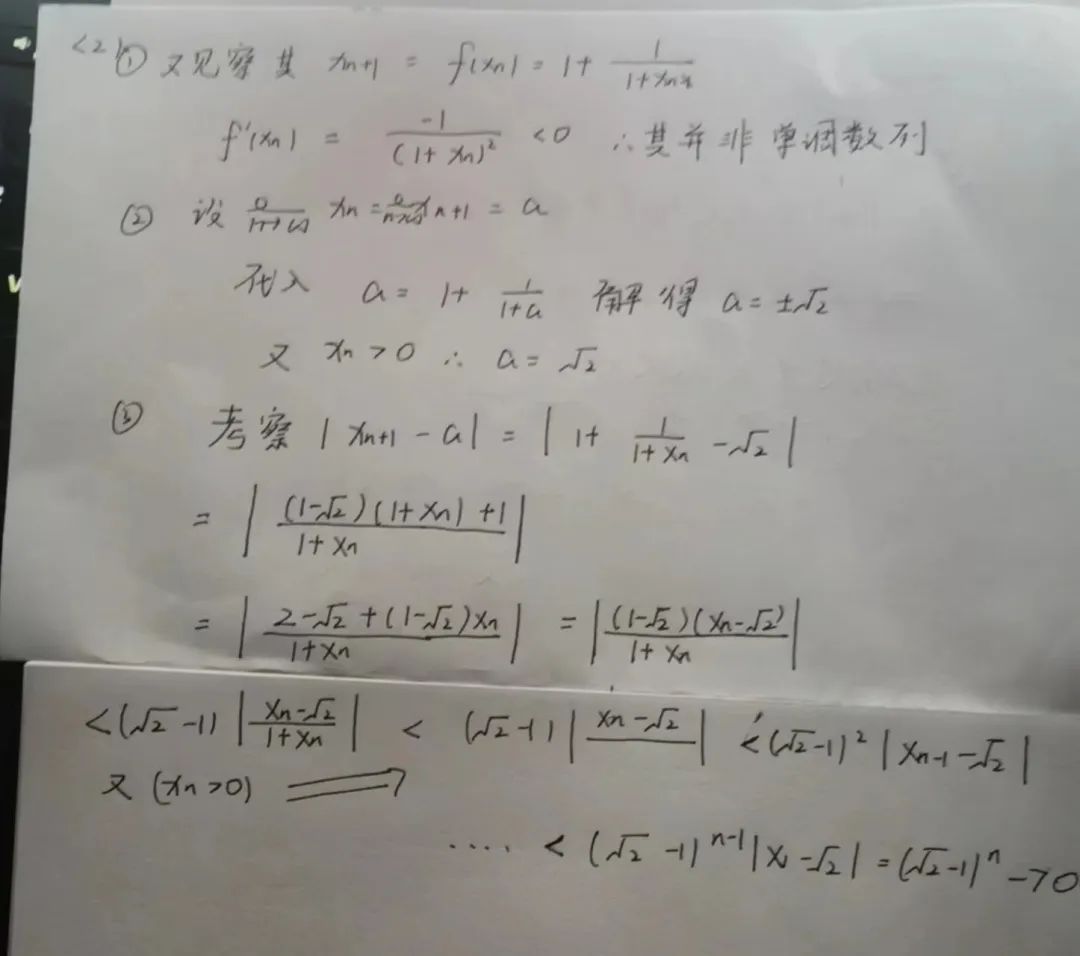 <2> ① 又见察其 xn+1 = f(xn) = 1+ 1/(1+xn)
f'(xn) = -1/(1+xn)² <0 ∴其并非单调数列
② 设 xn = xn+1 = a
代入 a = 1+ 1/(1+a) 解得 a = ±√2
又 xn>0 ∴ a = √2
③ 考察 |xn+1 - a| = | 1+ 1/(1+xn) - √2 |
= | ((1-√2)(1+xn)+1)/(1+xn) |
= | (2-√2+(1-√2)xn)/(1+xn) | = | ((1-√2)(xn-√2))/(1+xn) |
<(√2-1) | (xn-√2)/(1+xn) | < (√2-1) | xn-√2 | <(√2-1)² | xn-1-√2 |
又 (xn>0) ⟹
.... < (√2-1)ⁿ⁻¹ |x1-√2| = (√2-1)ⁿ →0